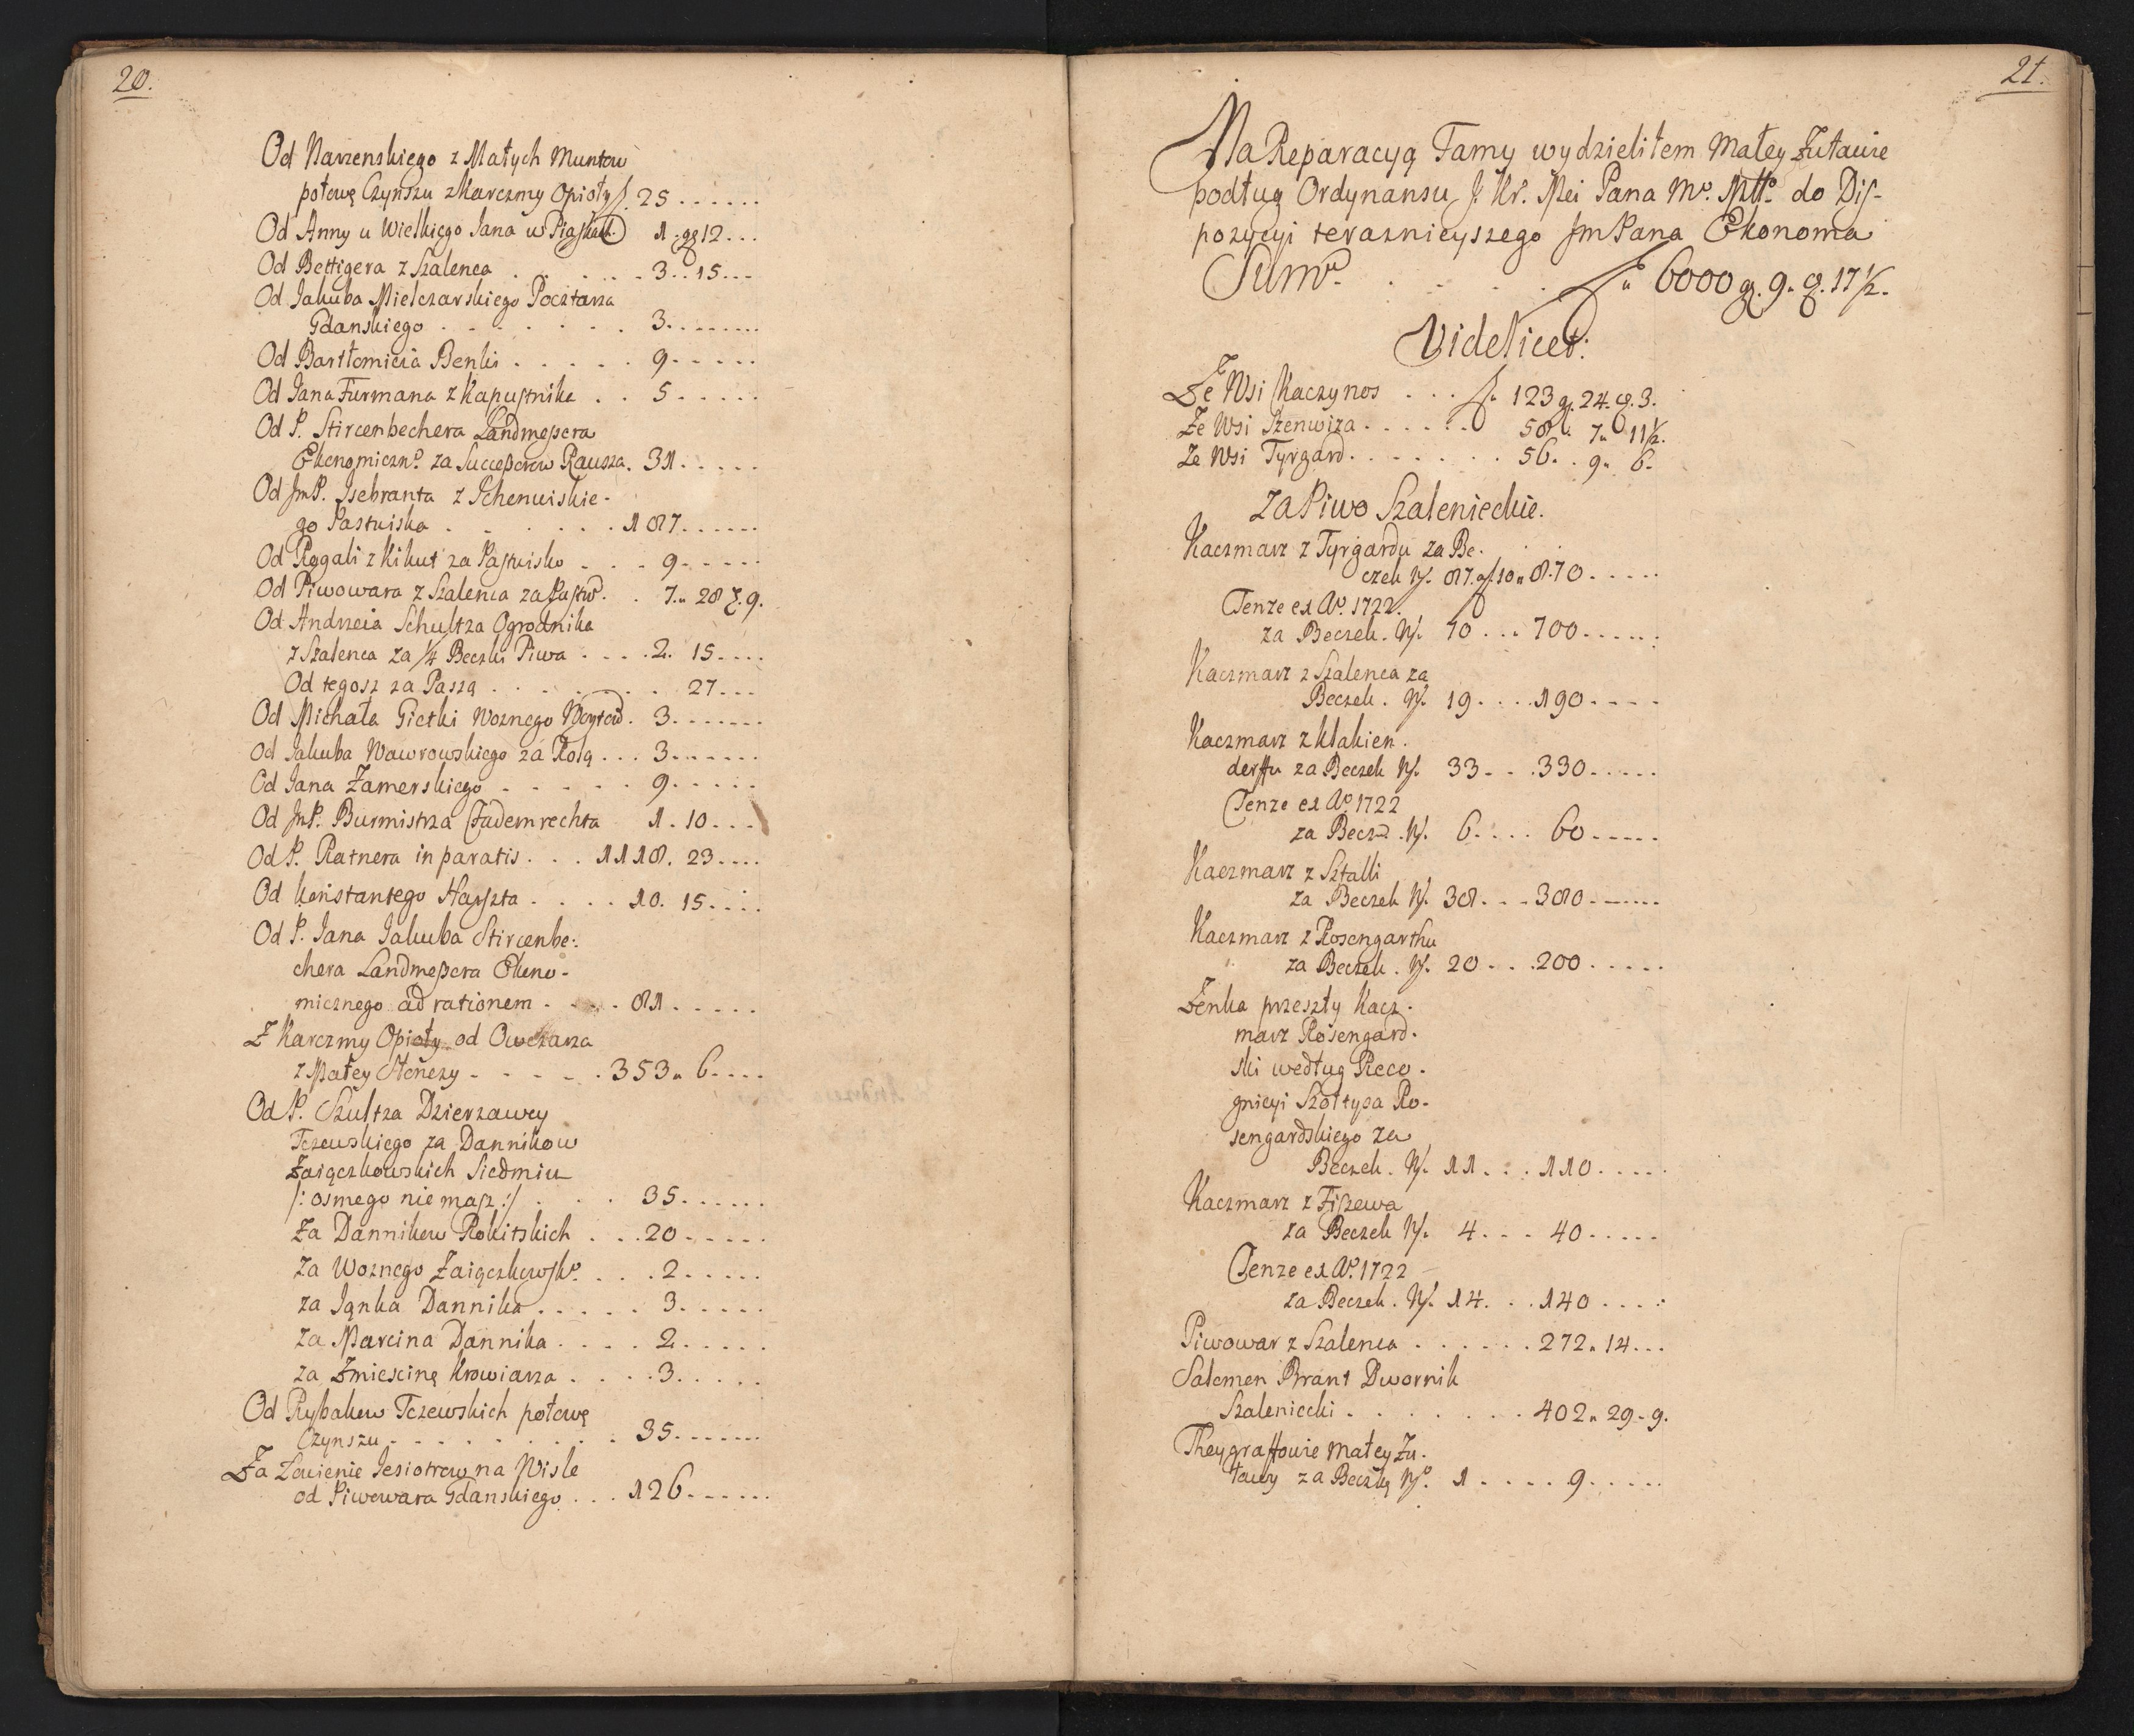 20.
Od Narzenskiego z Małych Muntow
połowę Czynszu z Karczmy Opioły f. 25 . . . . . .
Od Anny u Wielkiego Jana w Piaskach 1 . gg 12 . . .
Od Bettigera z Szalenca . . . . . . 3 . . 15 . . .
Od Jakuba Mielczarskiego Pocztarza
Gdanskiego . . . . . . . 3 . . . . . . .
Od Bartłomieia Benki . . . . . 9 . . . . .
Od Jana Furmana z Kapustnika . . 5 . . . . .
Od P. Stircenbechera Landmeßera
Ekonomiczn°. za Succeßorow Rausza. 31 . . . . .
Od JmP. Isebranta z Schenwiskie-
go Pastwiska . . . . . . 187 . . . . . .
Od Rogali z Kikut za Pastwisko . . . 9 . . . . .
Od Piwowara z Szalenca za Pastw. . 7 " 28 . 9.
Od Andrzeia Schultza Ogrodnika
z Szalenca za 1/4 Beczki Piwa . . . . 2. 15 . . . .
Od tegosz za Paszą . . . . . . . 27 . . .
Od Michała Gietki Woznego 3 . . . . . . .
Od Jakuba Wawrowskiego za Rolą . . . 3 . . . . . .
Od Jana Zamerskiego . . . . . 9 . . . . .
Od JmP. Burmistrza Fademrechta 1 . 10 . . .
Od P. Ratnera in paratis . . . 1118. 23 . . . .
Od Konstantego Hayszta . . . . 10. 15 . . . .
Od P. Jana Jakuba Stircenbe:
chera Landmeßera Ekono-
micznego ad rationem . . . . 81 . . . . .
Z Karczmy Opioły od Owczarza
z Małey Słońcy . . . . . 353 " 6 . . . .
Od P. Szultza Dzierzawcy
Tczewskiego za Dannikow
Zaiączkowskich Siedmiu
/: osmego nie masz :/ . . . 35 . . . . . .
Za Dannikow Rokitskich . . . 20 . . . . .
Za Woznego Zaiączkowsk°. . . . 2 . . . . .
za Jąnka Dannika . . . . . 3 . . . . .
za Marcina Dannika . . . . 2 . . . . .
za Zmiescinę Krowiarza . . . . 3 . . . . .
Od Rybakow Tczewskich połowę
Czynszu . . . . . . . . . 35 . . . . . . .
Za Łowienie Jesiotrow na Wisle
od Piwowara Gdanskiego . . . 126 . . . . . .
21.
Na Reparacyą Tamy wydzieliłem Małey Żuławie
podług Ordynansu J. Kr. Mci Pana M°. Mtt°. do Dis-
pozycyi teraznieyszego JmPana Ekonoma
Sum . . . . . f " 6000 g. 9. . 17 1/2.
Videlicet:
Ze Wsi Kaczynos . . . f. 123 g. 24. . 3.
Ze Wsi Szenwiza . . . . . . 58 " 7 " 11 1/2.
Ze Wsi Tyrgard . . . . . . . 56 . . 9 " 6.
Za Piwo Szalenieckie.
Kaczmarz z Tyrgardu za Be-
czek N. 87. à f. 10 " 870 . . . . .
Tenze ex A°. 1722.
za Beczek. N. 70 . . . 700 . . . . . .
Kaczmarz z Szalenca za
Beczek. N. 19 . . . . 190 . . . .
Kaczmarz z Klakien-
derffu za Beczek N. 33 . . . 330 . . . . .
Tenze ex A°. 1722
za Becz. N. 6 . . . . 60 . . . . .
Kaczmarz z Sztalli
za Beczek N. 38 . . . 380 . . . . . .
Kaczmarz z Rosengarthu
za Beczek. N. 20 . . . 200 . . . . .
Zenka przeszły Kacz-
marz Rosengard-
ski według Reco-
gnicyi Szołtysa Ro-
sengardskiego za
Beczek. N. 11 . . . 110 . . . . .
Kaczmarz z Fiszewa
za Beczek N. 4 . . . 40 . . . . .
Tenze ex A°. 1722
za Beczek. N. 14 . . . 140 . . . .
Piwowar z Szalenca . . . . . . 272 " 14 . . .
Salomon Brant Dwornik
Szaleniecki . . . . . . . 402 " 29 . 9.
Theygraffowie Małey Żu-
ławy za Beczkę N°. 1 . . . . 9 . . . . .